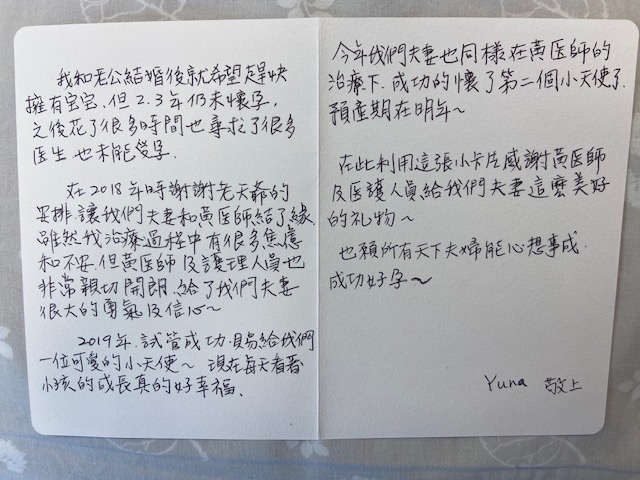 我和老公結婚後就希望趕快
擁有宝宝,但2.3年仍未懷孕,
之後花了很多時間也尋求了很多
医生也未能受孕.
在2018年時謝謝老天爺的
安排,讓我們夫妻和黃医師結了緣.
雖然我治療過程中有很多焦慮
和不安.但黃医師及護理人員也
非常親切開朗.給了我們夫妻
很大的勇氣及信心~
2019年.試管成功.賜給我們
一位可愛的小天使~ 現在每天看著
小孩的成長真的好幸福.
今年我們夫妻也同樣在黃医師的
治療下.成功的懷了第二個小天使了.
預產期在明年~
在此利用這張小卡片感謝黃医師
及医護人員給我們夫妻這麼美好
的礼物~
也願所有天下夫婦能心想事成.
成功好孕~
Yuna 敬上